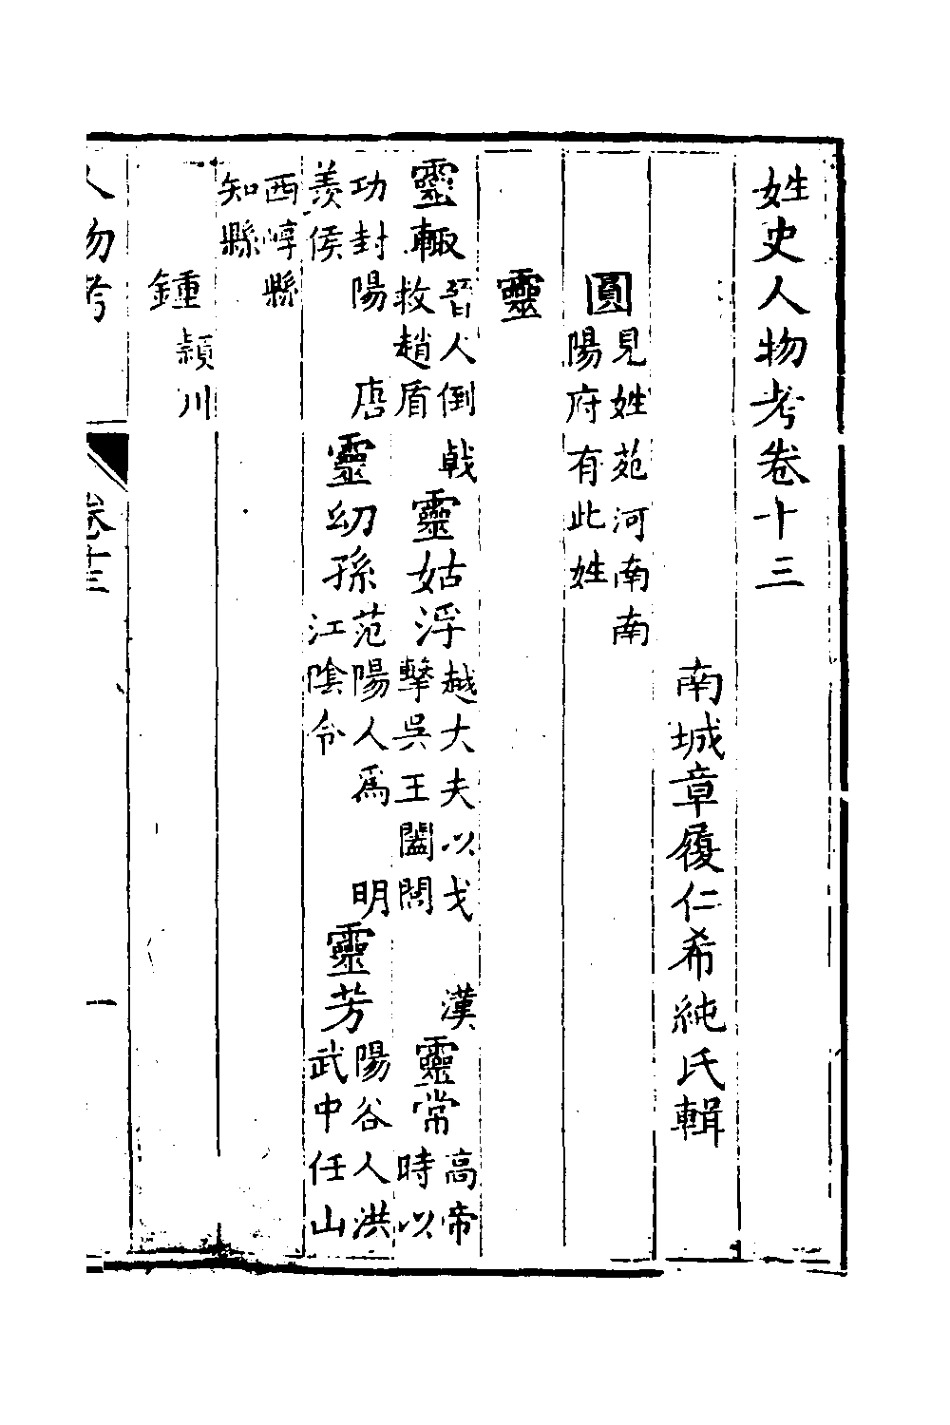 姓史人物考卷十三
南城章履仁希純氏輯
圓見姓苑河南南陽府有此姓
靈
靈輒晉人倒戟救趙盾靈姑浮越大夫以戈擊吳王闔閭漢靈常高帝時以
功封陽羨侯唐靈幼孫范陽人爲江陰令明靈芳陽谷人洪武中任山
西崞縣知縣
鍾頴川
人物考 卷十三 一